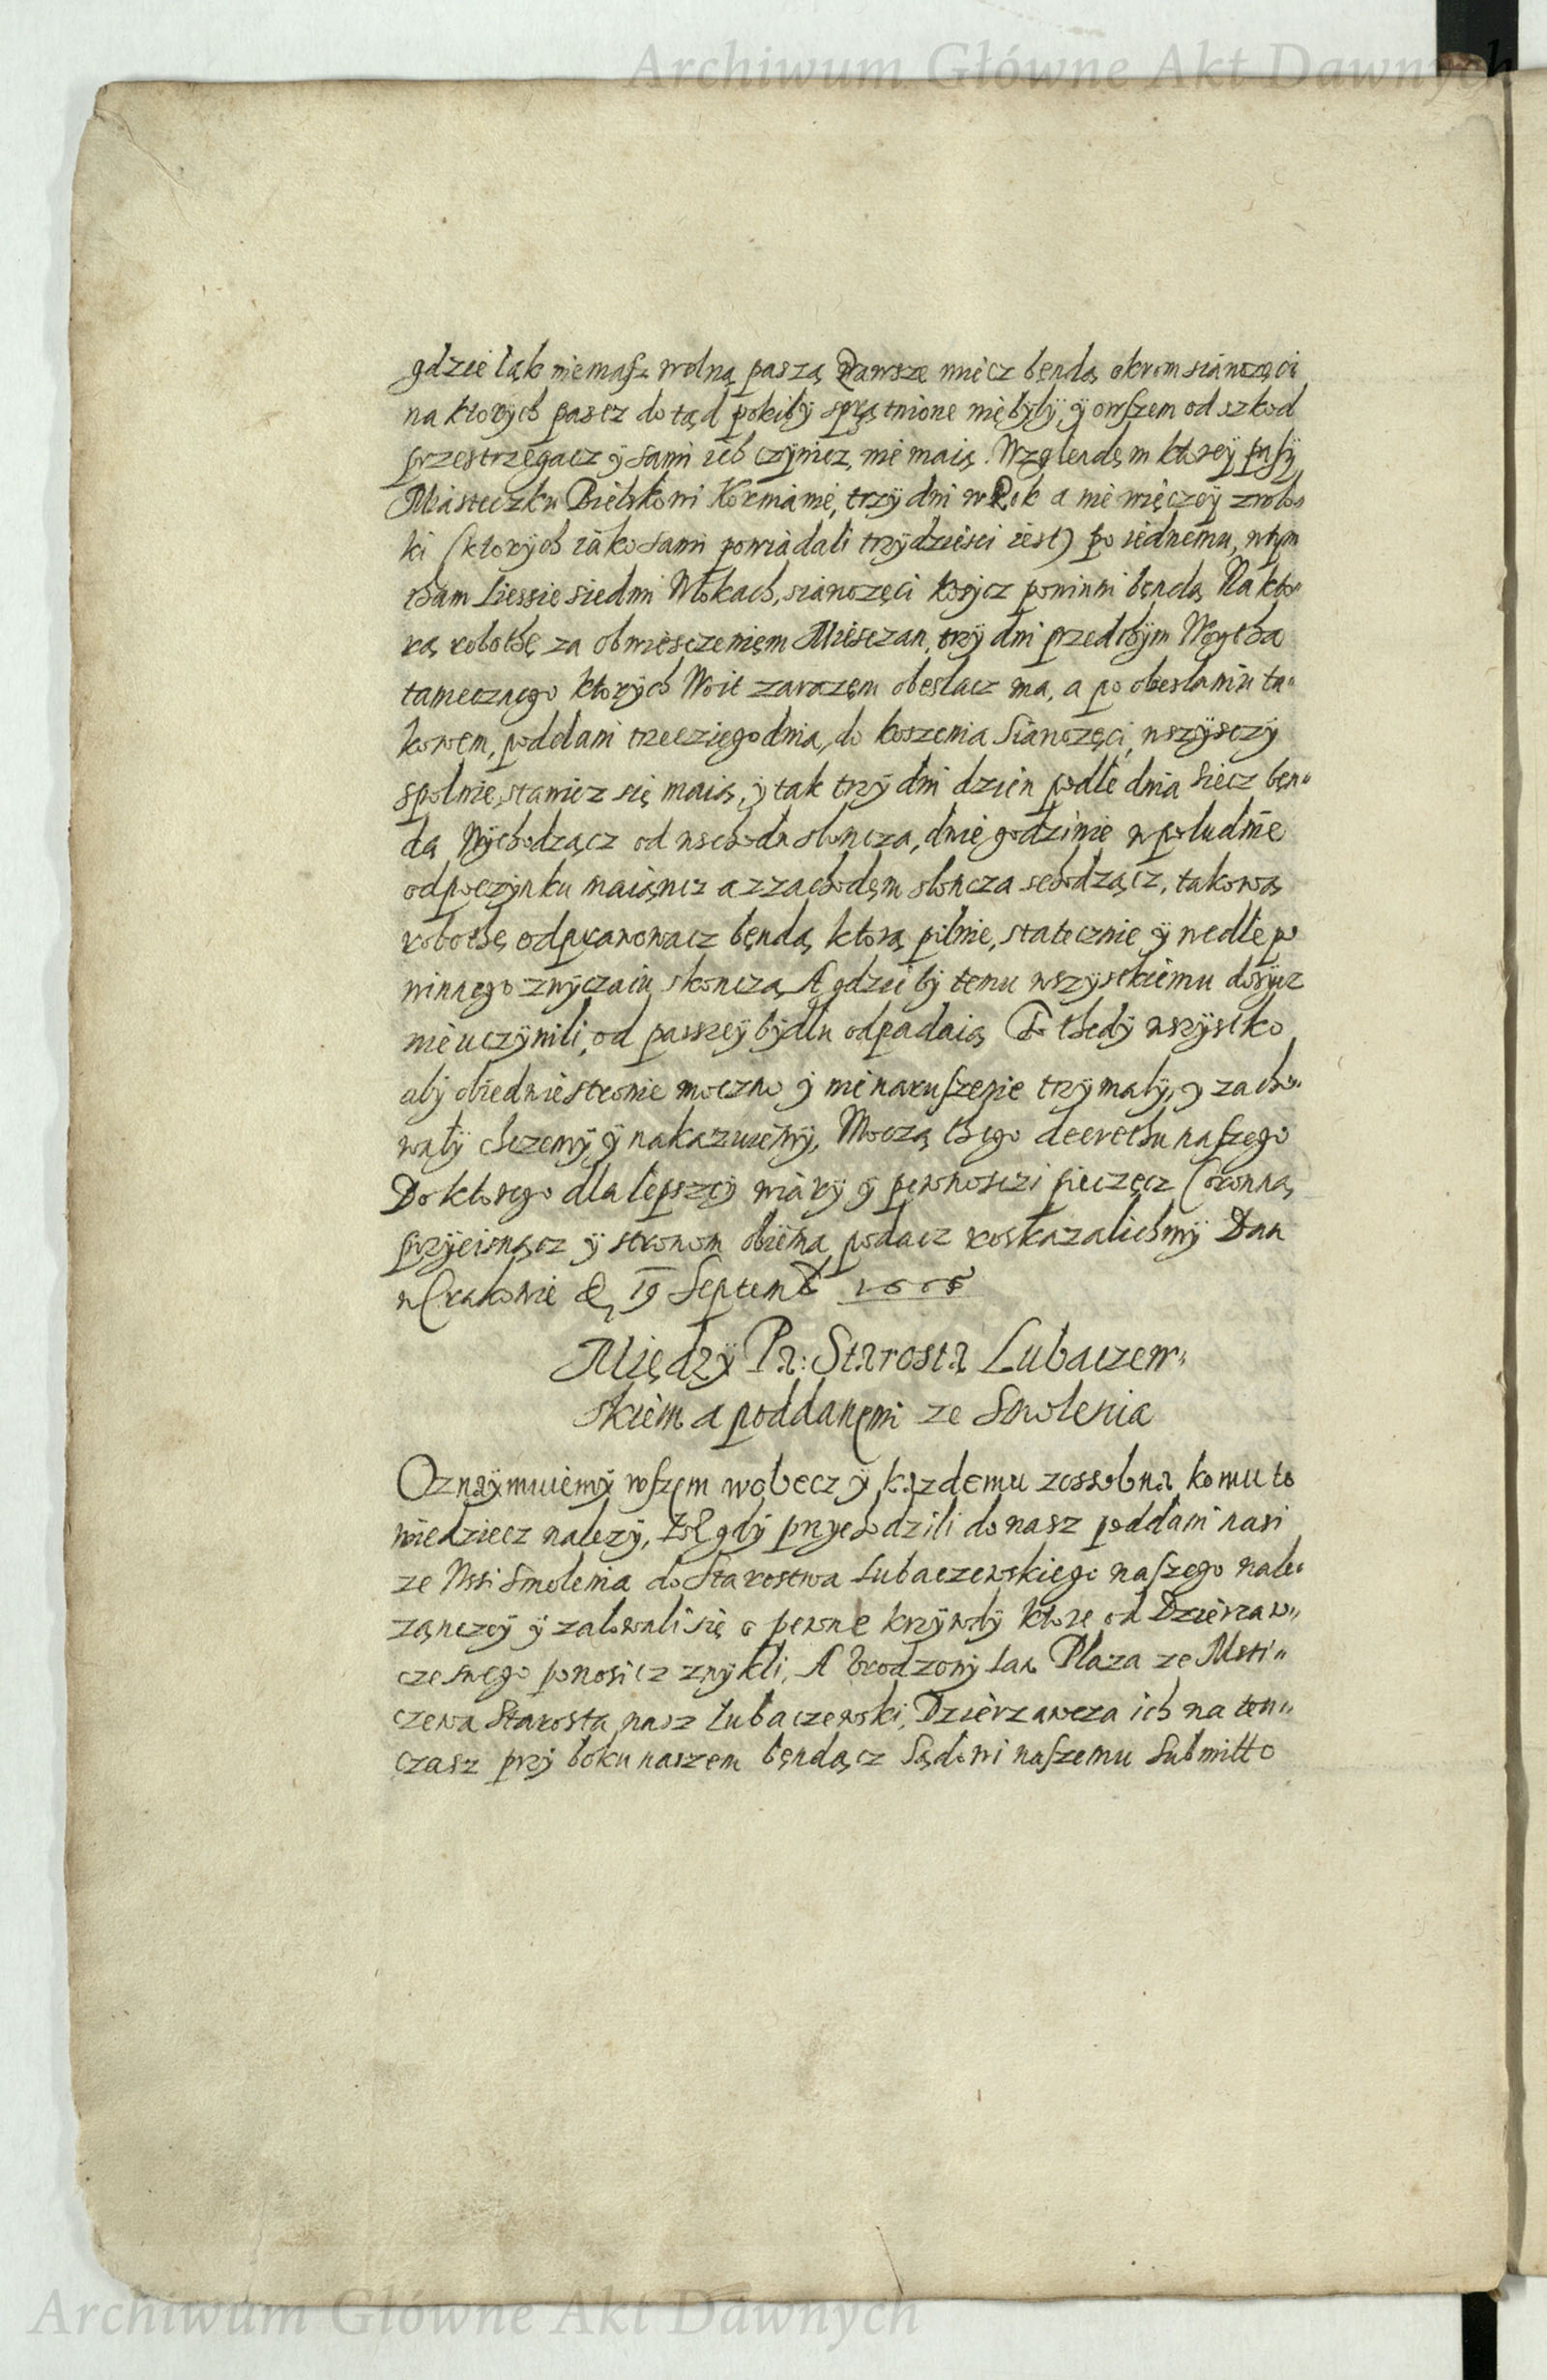 Archiwum Główne Akt Dawnych
gdzie łąk niemasz wolną paszą zawsze miecz będą okrom sianożęci
na ktorych pascz dotąd pokiby sprzątnione niebyły, ÿ owszem od szkod
przestrzegacz ÿ sami ich czÿnicz nie maią. Względem ktorey pasÿ
Miasteczku Bielskowi Kormanie, trzÿ dni w Rok a nie więczey
ki (ktorych iako sami powiadali trzÿdziesci iest) po iednemu, w tym
tham Liessie siedmi Włokach, sianożęci kosycz powinni będą Na kto„
rą robothę za obwiesczeniem Miesczan, trzÿ dni przedtÿm Woytha
tamecznego ktorych Woit zarazem obeslacz ma, a po obeslaniu ta„
kowem, poddani trzecziego dnia, do koszenia Sianożęci, wszÿsczÿ
spolnie stawicz się maią, ÿ tak trzÿ dni dzien podle dnia siecz będ„
dą Wÿchodzącz od wschodu słoncza, dwie godzinie w południe
odpoczÿnku maiącz a z zachodem słoncza schodzącz, takową
robothę odprawowacz będą, ktorą pilnie, statecznie ÿ wedle po
winnego zwÿczaiu skonczą, A gdzieby temu wszÿstkiemu dosycz
nieuczÿnili, od passzeÿ bydłu odpadaią To thedÿ wszÿstko
abÿ obiedwie stronie moczno ÿ nienaruszenie trzÿmały, ÿ zacho„
wałÿ chczemÿ ÿ nakazuiemÿ, Moczą thego decrethu naszego
Do ktorego dla lepszeÿ wiarÿ ÿ pewnosczi pieczęcz Coronną
przÿcisnącz ÿ stronom obiema podacz roskazalichmÿ Dan
w Crakowie D. 19 Septemb
Międzÿ Pa: Starostą Lubaczew„
skiem a poddanemi ze Smolenia
Oznaÿmuiemÿ wszem wobecz ÿ każdemu zossobna komu to
wiedziecz należÿ, Iż gdÿ przÿchodzili do nasz poddani nasi
ze Wssi Smolenia do Starostwa Lubaczewskiego naszego nale„
żączeÿ ÿ żalowali się o pewne krzÿwdÿ ktore od Dzierżaw„
cze swego ponosicz zwÿkli, A Urodzony Jan Płaza ze Msti„
czowa Starosta nasz Lubaczewski, Dzierżawcza ich na ten„
czasz przÿ boku naszem będącz Sądowi naszemu submitto
Archiwum Główne Akt Dawnych